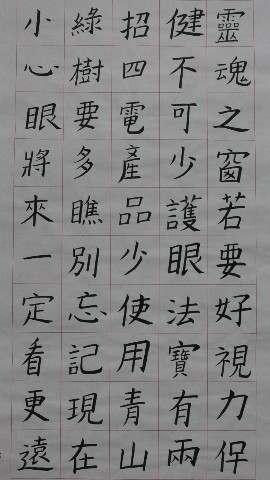 靈魂之窗若要好視力保
健不可少護眼法寶有兩
招四電產品少使用青山
綠樹要多瞧別忘記現在
小心眼將來一定看更遠